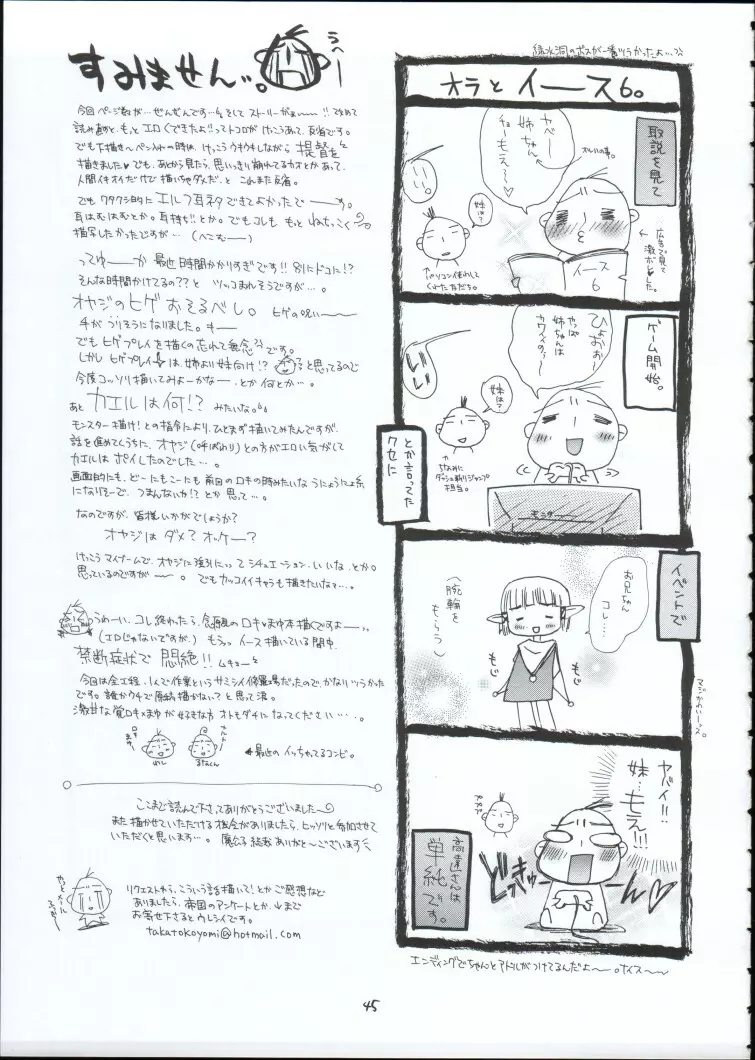 すみません…。
うへー
今回ページ数が…ぜんぜんです…そしてストーリーがぁーー!!改めて
読み直すと、もっとエロくできたよ!!ってトコロがけっこうあって、反省です。
でも下描き〜ペン入れの時は、けっこうウキウキしながら提督を
描きました♥でも、あとから見たら、思いっきり崩れてるカオとかあって、
人間イキオイだけで描いちゃダメだ。と これまた反省。
でもワタクシ的に エルフ耳ネタできてよかったでーーす。
耳はむはむとか。耳持ち!!とか。でもコレも もっと ねちっこく
描写したかったですが…(へこむー)
ってゆーーか 最近時間かかりすぎです!!別にドコに!?
そんな時間かけてるの??と ツッコまれそうですが…。
オヤジのヒゲ おそるべし。 ヒゲの呪いーーー
手がうりそうになりました。キー
でもヒゲプレイを描くの忘れて無念です。
しかし ヒゲプレイは、姉より妹向け!? と思ってるので
今度コッソリ描いてみよーかなー…とか何とか…。
あと カエルは何!? みたいな。
モンスター描け!との指令により、ひとまず描いてみたんですが、
話を進めてくうちに、オヤジ(呼ばわり)との方がエロい気がして
カエルはポイしたのでした…。
画面的にも、どーにもこーにも前回のロキの時みたいなうにょうにょ系
になりそーで、つまんないか!?とか思って…。
なのですが、皆様いかがでしょうか?
オヤジは ダメ?オッケー?
けっこうマイブームで、オヤジに強引にってシチュエーション、いいな、とか。
思っているのですがーー。でもカッコイイキャラも描きたいなァ…。
うめーい、コレ終わたら、念願のロキ×まゆ本描くですよー
(エロじゃないですが、) もうっ イース描いている間中、
禁断症状で 悶絶!! ムキョー
今回は全工程、1人で作業というサミシイ修羅場だったので、かなりツラかった
です。誰かウチで原稿描かない?と思って涙。
激甘な覚ロキ×まゆが好きな方 オトモダチになってください…。
ロキ
まゆ
ナルト
めし
るなくん
←最近のイッちゃてるコンビ。
ここまで読んで下さってありがとうございました〜
また描かせていただける機会がありましたら、ヒッソリと参加させて
いただくと思います…。
リクエストやら、こういう話描いて!とか ご感想など
ありましたら、帝国のアンケートとか、↓まで
お寄せ下さるとウレシイです。
takatokoyomi@hotmail.com
緑水洞のボスが一番ツラかったよ…
オラと イース6。
取説を見て
ヤベー
姉ちゃん
チョーもえ〜
いい。
姉は?
イース
6
広告で見て
ゲーム開始。
ひょおぉー
やっぱ
姉ちゃんは
カワイイのぅ〜
いい
姉は?
ちなみに
ダッシュ斬りジャンプ
担当。
モニター
とか言ってた
クセに
イベントで
お兄ちゃん
コレ……
(腕輪を
もらう)
もじ
もじ
マジかわいーッス。
ヤバイ!!
妹…もえ!!!
どきどきゅーーん♥
高遠さんは
単純です。
エンディングでちゃんとアドルがつけてるんだよーー。ナイス〜〜
45